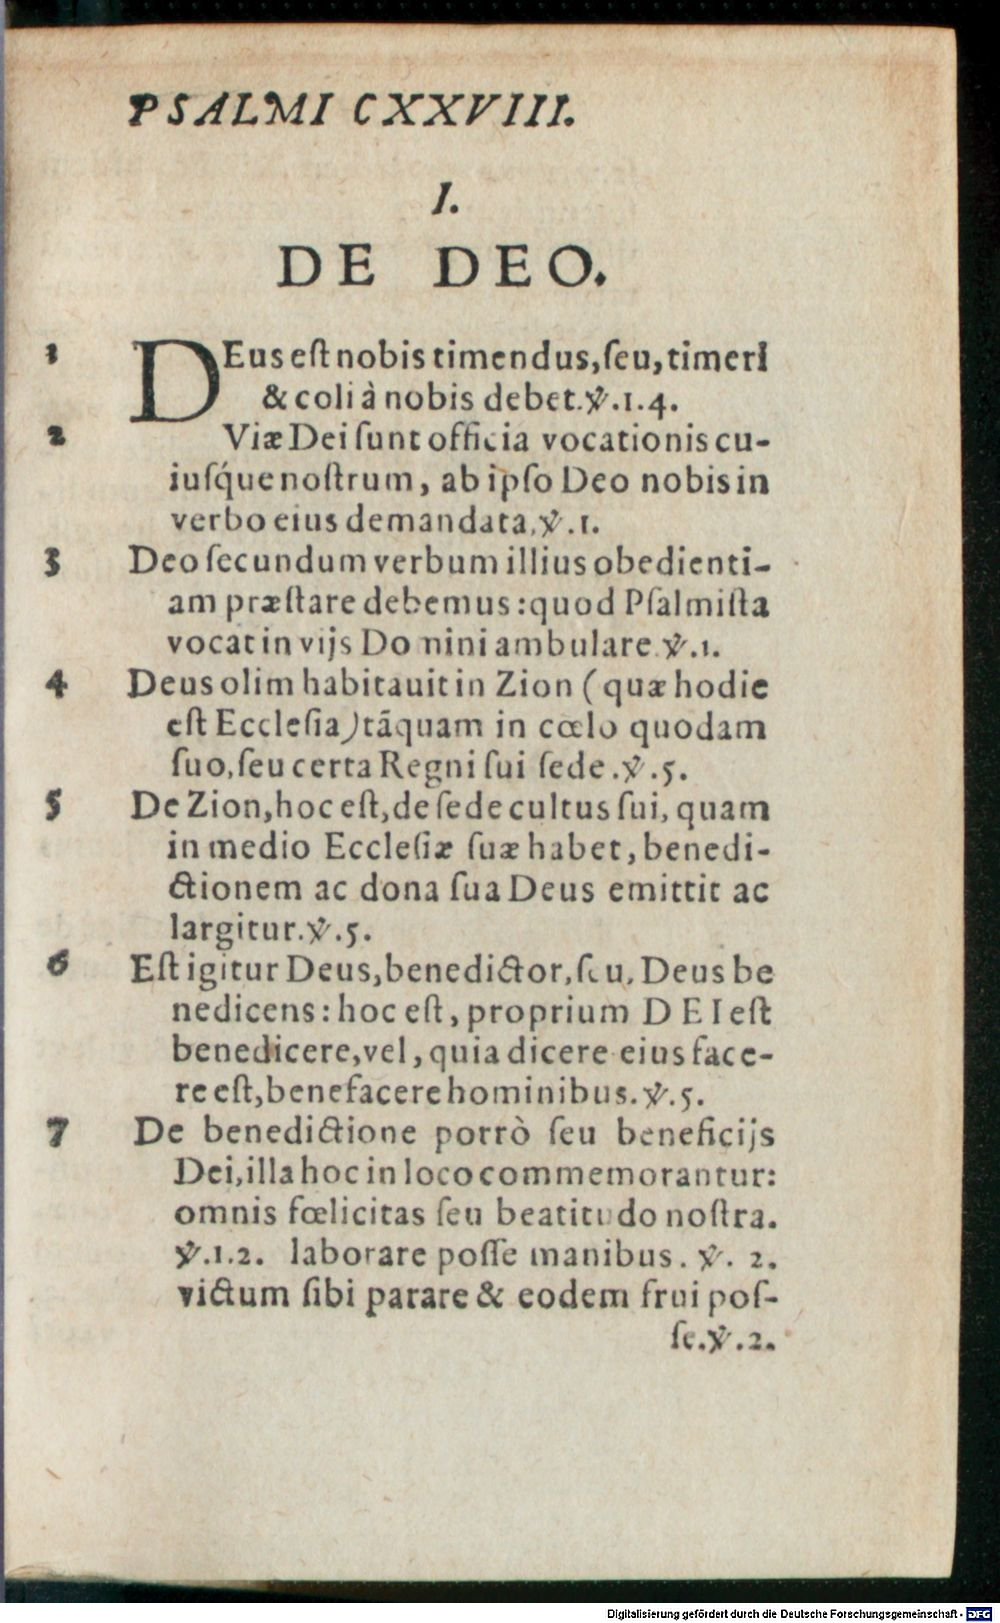 PSALMI CXXVIII.
I.
DE DEO.
1 DEus est nobis timendus, seu, timeri
& coli à nobis debet. ꝟ. 1. 4.
2 Viæ Dei sunt officia vocationis cu-
iusq́ue nostrum, ab ipso Deo nobis in
verbo eius demandata. ꝟ. 1.
3 Deo secundum verbum illius obedienti-
am præstare debemus: quod Psalmista
vocat in vijs Domini ambulare. ꝟ. 1.
4 Deus olim habitauit in Zion (quæ hodie
est Ecclesia) tãquam in cœlo quodam
suo, seu certa Regni sui sede. ꝟ. 5.
5 De Zion, hoc est, de sede cultus sui, quam
in medio Ecclesiæ suæ habet, benedi-
ctionem ac dona sua Deus emittit ac
largitur. ꝟ. 5.
6 Est igitur Deus, benedictor, seu, Deus be
nedicens: hoc est, proprium DEI est
benedicere, vel, quia dicere eius face-
re est, benefacere hominibus. ꝟ. 5.
7 De benedictione porrò seu beneficijs
Dei, illa hoc in loco commemorantur:
omnis fœlicitas seu beatitudo nostra.
ꝟ. 1. 2. laborare posse manibus. ꝟ. 2.
victum sibi parare & eodem frui pos-
se. ꝟ. 2.
Digitalisierung gefördert durch die Deutsche Forschungsgemeinschaft - DFG